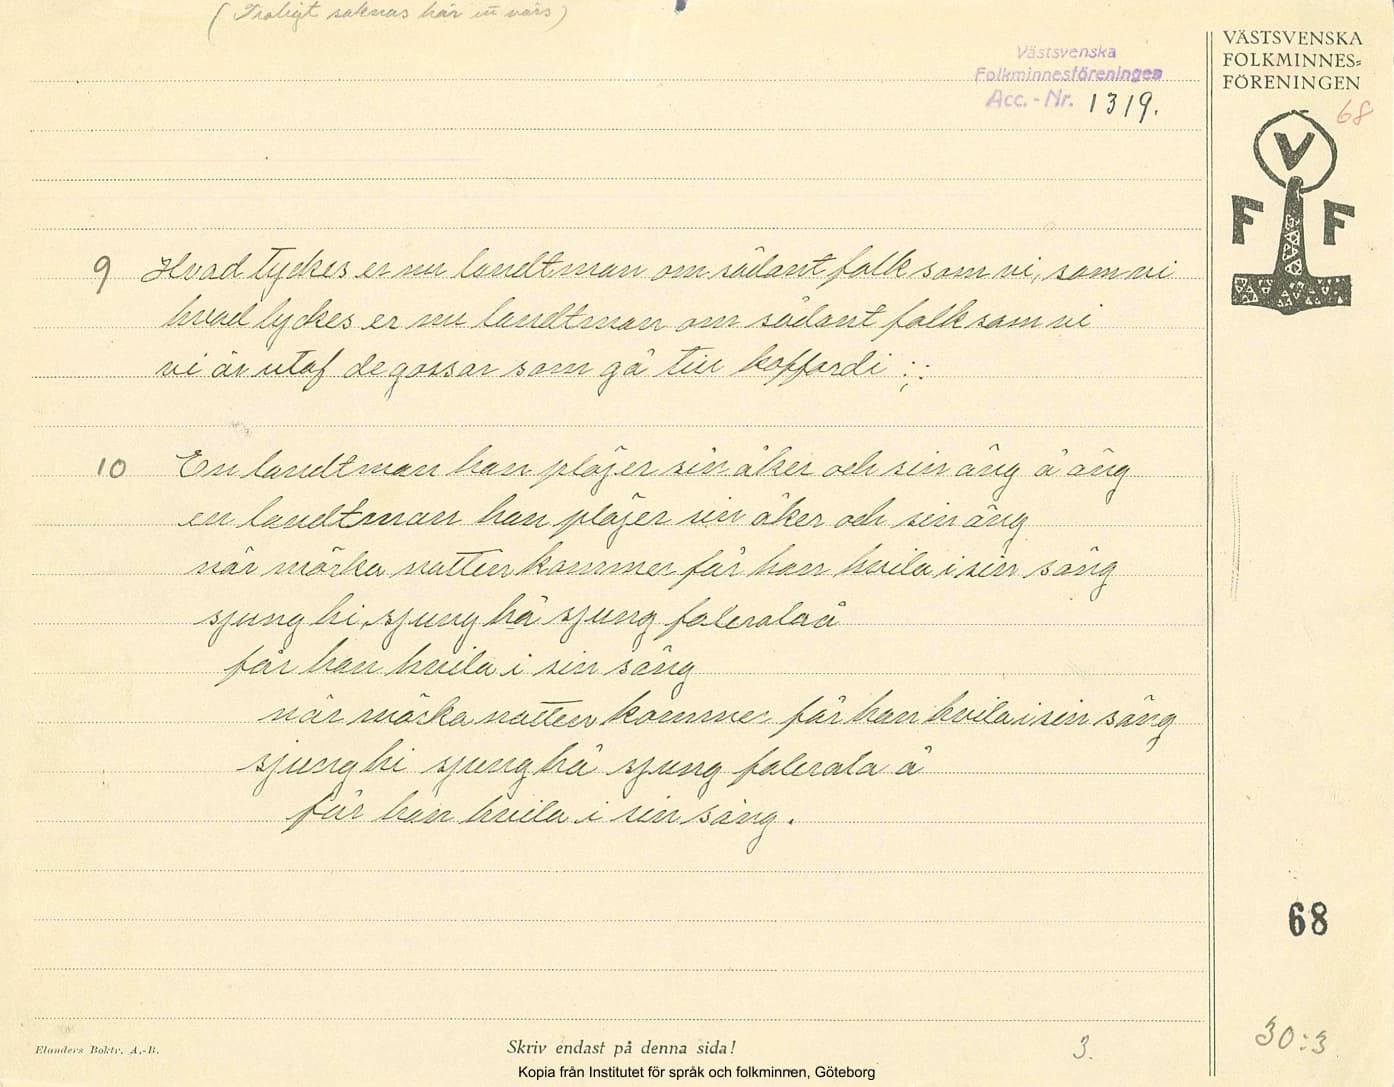 (Troligt saknas här en värs)
VÄSTSVENSKA
FOLKMINNES=
FÖRENINGEN
Västsvenska
Folkminnesföreningen
Acc.-Nr. 1319.
68
V
F F
9 Hvad tyckes er nu landtman om sådant folk som vi, som vi
hvad tyckes er nu landtman om sådant folk som vi
vi är utaf de gossar som gå till koffardi :;:
10 En landtman han plöjer sin åker och sin äng å äng
en landtman han plöjer sin åker och sin äng
när mörka natten kommer får han hvila i sin säng
sjung hi, sjung hå sjung faleralaå
får han hvila i sin säng
när mörka natten kommer får han hvila i sin säng
sjung hi sjung hå sjung falerala å
får han hvila i sin säng.
68
30:3
Elanders Boktr. A.-B.
Skriv endast på denna sida!
3.
Kopia från Institutet för språk och folkminnen, Göteborg